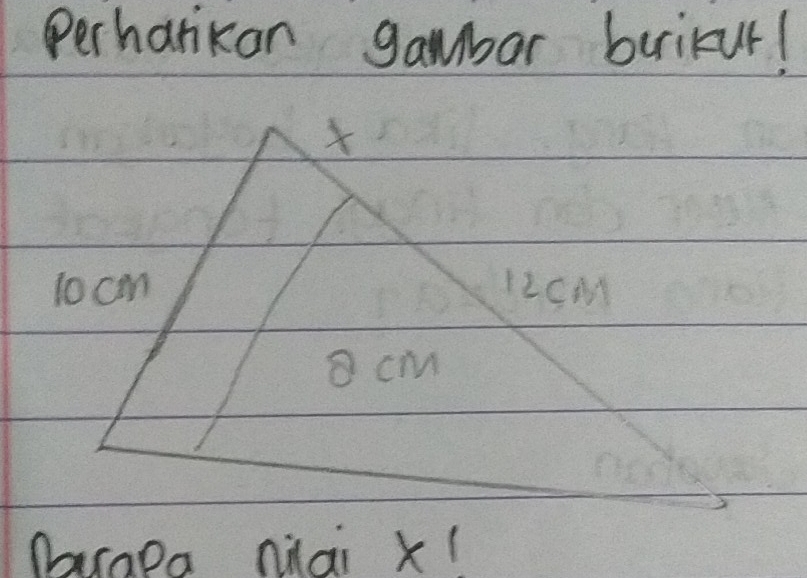 Perhatikan gambar berikut!
x
10 cm
12 cm
8 cm
Berapa nilai x!